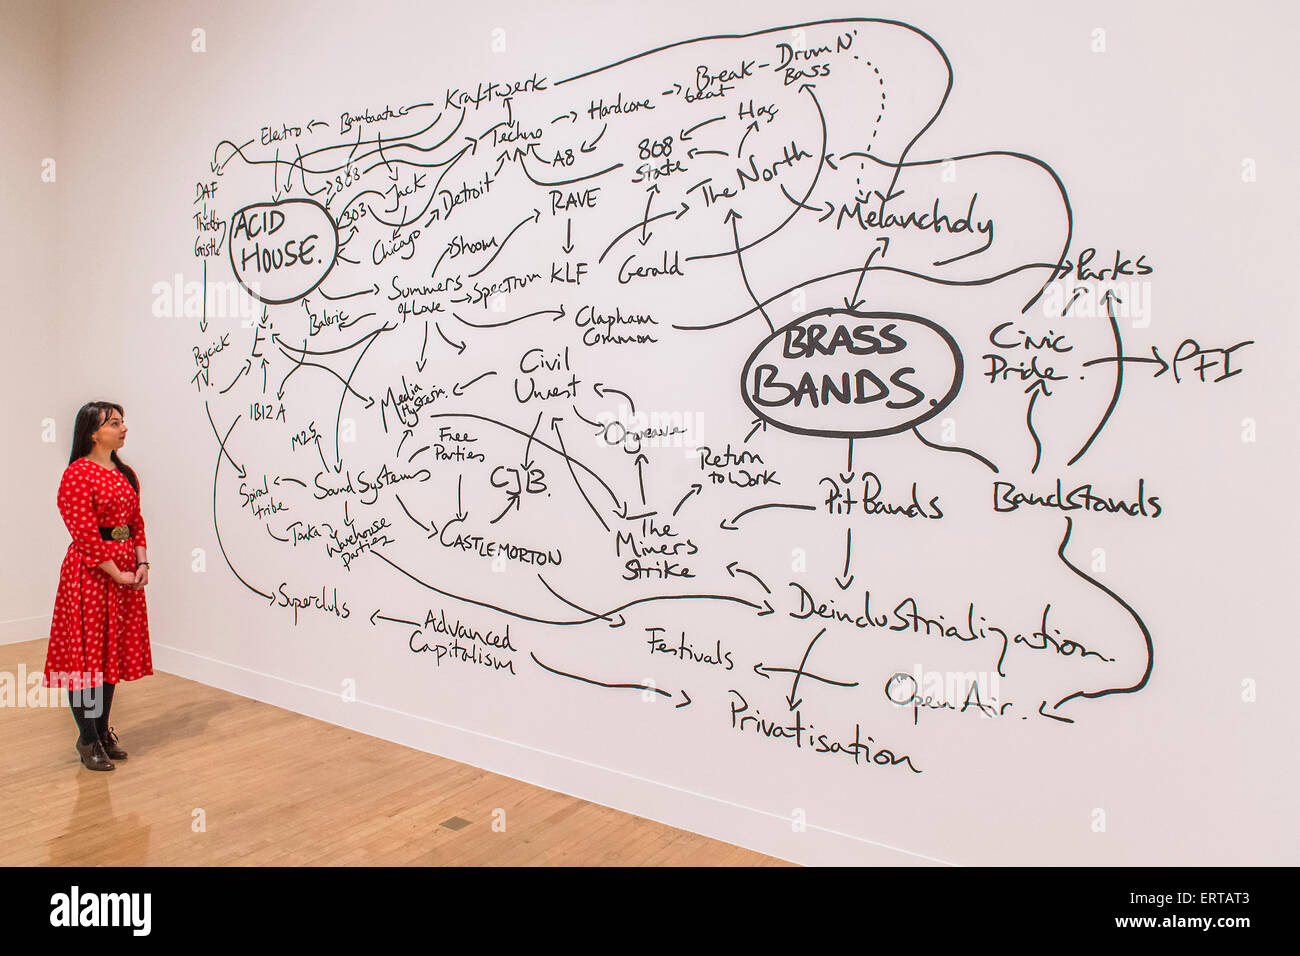 Kraftwerk
Bambaata
Electro
DAF
Throbbing
Gristle
ACID
HOUSE.
808
303
Jack
Chicago
Detroit
Techno
Hardcore
Break
beat
Drum N'
Bass
A8
808
State
Hac
The North
RAVE
Shoom
Summers
of Love
Spectrum
KLF
Gerald
Melancholy
Clapham
Common
Parks
BRASS
BANDS.
Civic
Pride.
PFI
Baleric
'E'
Psycick
TV.
IBIZA
M25
Media
Hysteria.
Civil
Unrest
Orgreave
Free
Parties
Return
to Work
CJB.
Spiral
tribe
Sound Systems
Tonka
Warehouse
Parties
CASTLEMORTON
The
Miners
Strike
Pit Bands
Bandstands
Superclubs
Advanced
Capitalism
Deindustrialization.
Festivals
Open Air.
Privatisation
alamy stock photo
ERTAT3
www.alamy.com